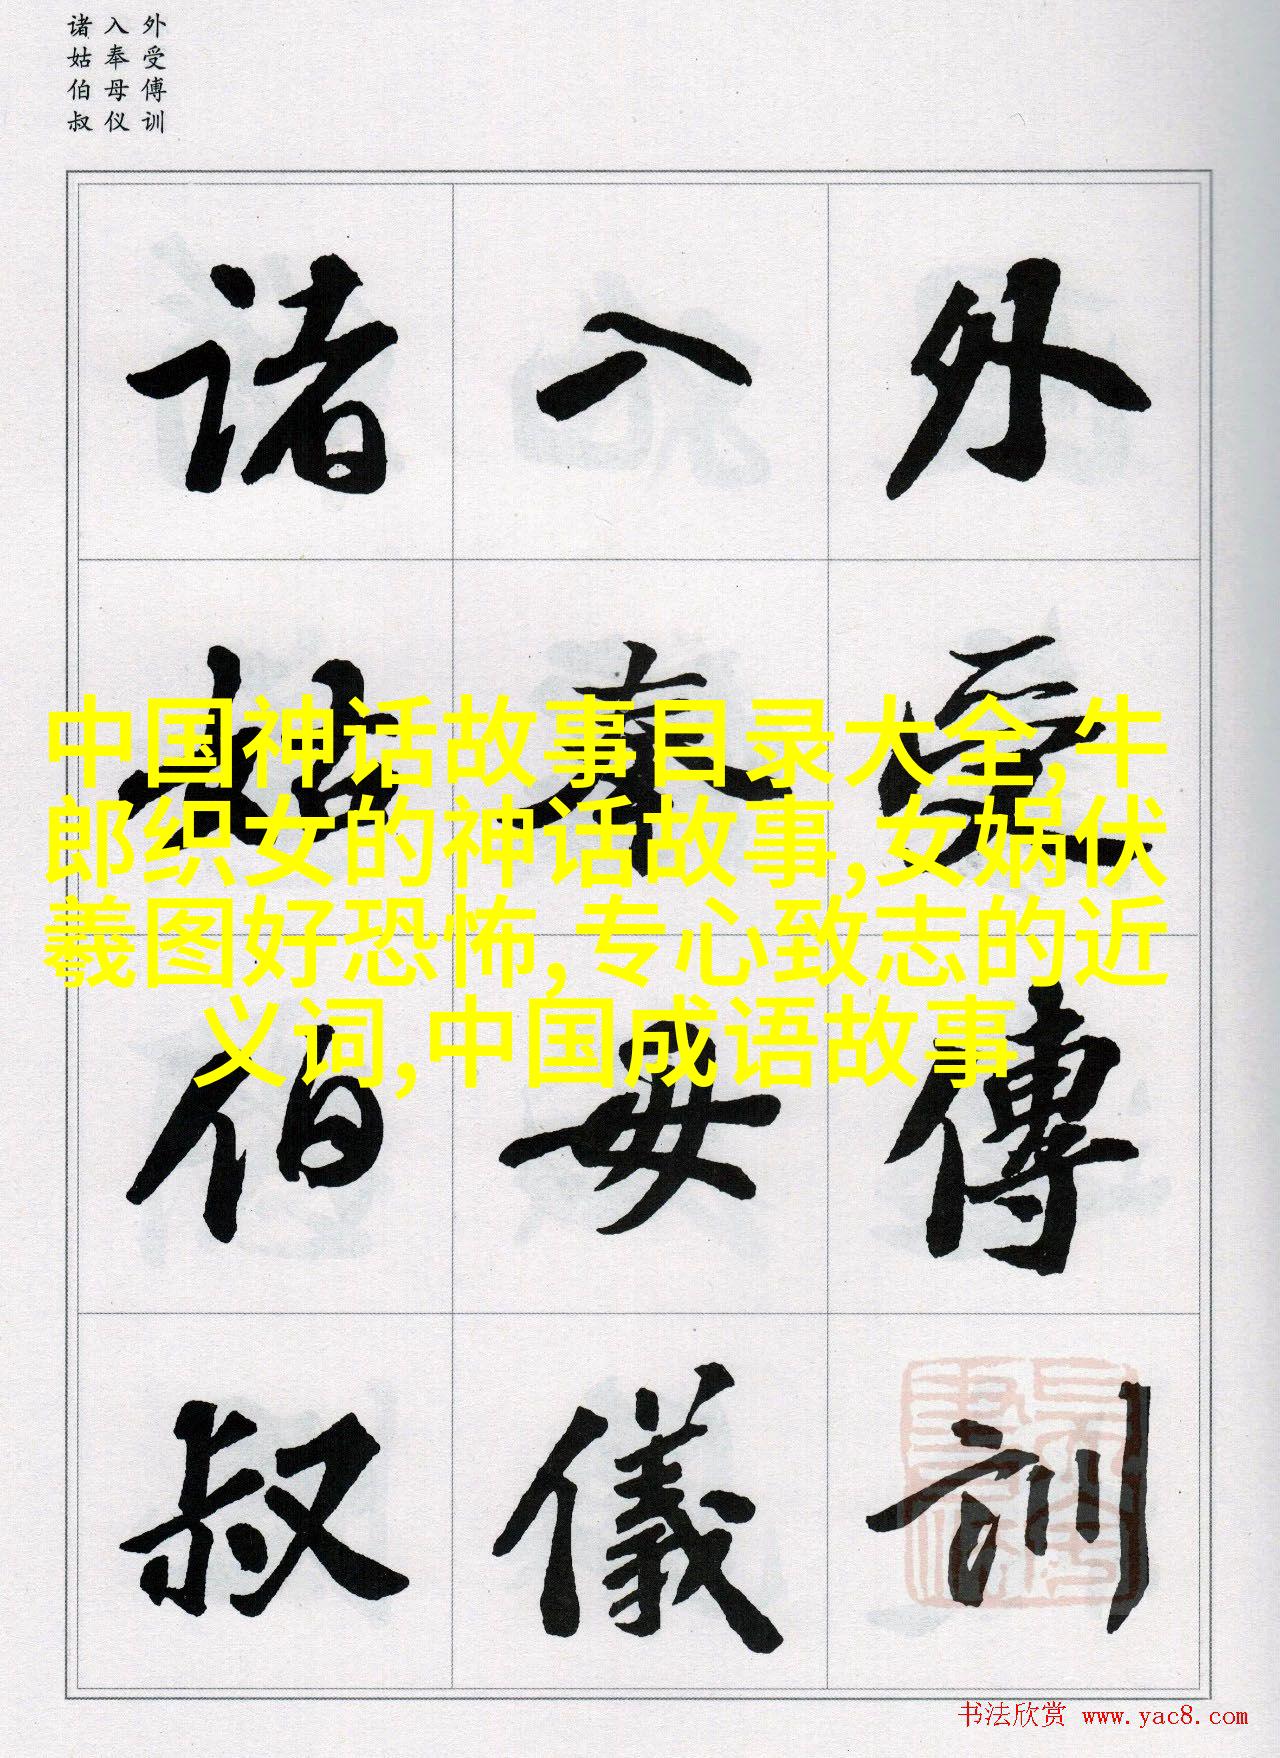 外受傅训
入奉母仪
诸姑伯叔
外受傅訓
入奉母儀
诸姑伯叔
中国神话故事目录大全,牛
郎织女的神话故事,女娲伏
羲图好恐怖,专心致志的近
义词,中国成语故事
书法欣赏 www.yac8.com